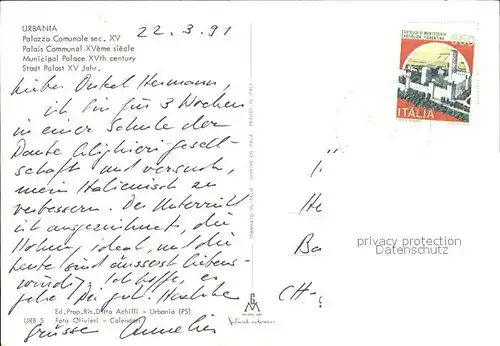 URBANIA
Palazzo Comunale sec. XV
Palais Communal XVème siècle
Municipal Palace XVth century
Stadt Palast XV Jahr.
22.3.91
Lieber Onkel Hermann,
ich bin für 3 Wochen
in einer Schule der
Dante Alighieri gesell-
schaft und versuch,
mein Italienisch zu
verbessern. Der Unterricht
ist ausgezeichnet, die
Wohnung ideal und die
Leute sind äusserst liebens-
würdig. Ich hoffe, es
gehe Dir gut! Herzliche
Grüsse
Ed. Prop. Ris. Ditta Achilli - Urbania (PS)
URB 5 Foto Olivieri - Calendari
CASTELLO DI MONTECCHIO
CASTIGLION FIORENTINO
ITALIA
He
Ba
CH-
privacy protection
Datenschutz